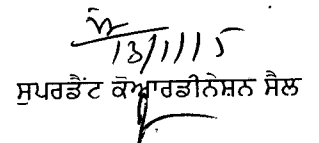 13/1/15
ਸੁਪਰਡੈਂਟ ਕੋਆਰਡੀਨੇਸ਼ਨ ਸੈਲ